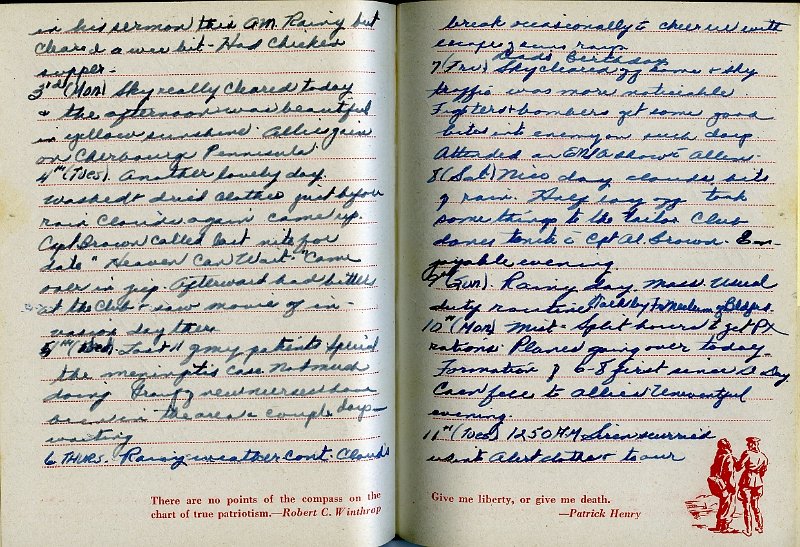 in his sermon this AM. Rainy but
cleared a wee bit - Had chicken
supper -
3rd (Mon) Sky really cleared today
& the afternoon was beautiful
in yellow sunshine. Allies gain
on Cherbourg Peninsula.
4th (Tues). Another lovely day.
Washed & dried clothes just before
rain clouds again came up.
Cpt Brown called last nite for
date "Heaven Can Wait". Came
over in jeep. Afterward had bitters
at the Club & saw movie of in-
vasion day there
5th (Wed) Last of my patients
the meningitis case. Not much
doing. Group of new nurses have
been in the area a couple days -
waiting
6 THURS. Rainy weather cont. Clouds
There are no points of the compass on the
chart of true patriotism.—Robert C. Winthrop
break occasionally to cheer us with
rays
Dad's Birthday
7 (Fri) Sky cleared off some & sky
traffic was more noticeable
Fighters & bombers get some good
bites into enemy on such days.
Attended an ENSA show c Allens.
8 (Sat) Nice day, clouds, bits
of rain. Half day off took
some things to the tailor. Club
dance tonite c Cpt Al Brown. En-
joyable evening.
9th (Sun). Rainy day. Mass. Usual
duty routine.
10th (Mon) Mist - Split hours to get PX
rations. Planes going over today.
Formation of 6-8 first since D Day
Caen falls to allies. Uneventful
evening.
11th (Tues) 1250 AM Siren
went Alert clothes & to our
Give me liberty, or give me death.
—Patrick Henry